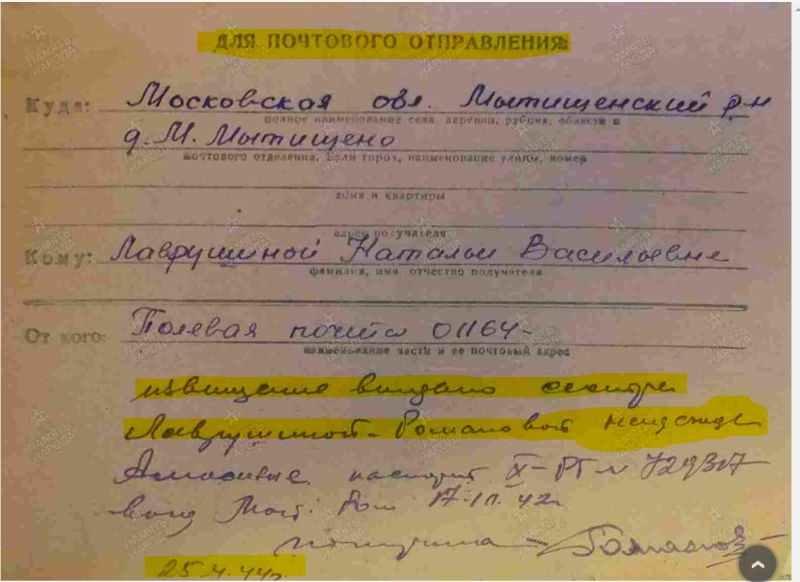 ДЛЯ ПОЧТОВОГО ОТПРАВЛЕНИЯ
Куда: Московская обл. Мытищенский р-н
полное наименование села, деревни, района, области и
д. М. Мытищено
почтового отделения. Если город, наименование улицы, номер
дома и квартиры
адрес получателя
Кому: Лаврушиной Наталье Васильевне
фамилия, имя, отчество получателя
От кого: Полевая почта 01164-
наименование части и ее почтовый адрес
извещение выдано сестре
Лаврушиной-Романовой
паспорт IX-РГ № 729317
17.11.42г
получила - Романова
25.4.44г.
ПАМЯТЬ НАРОДА